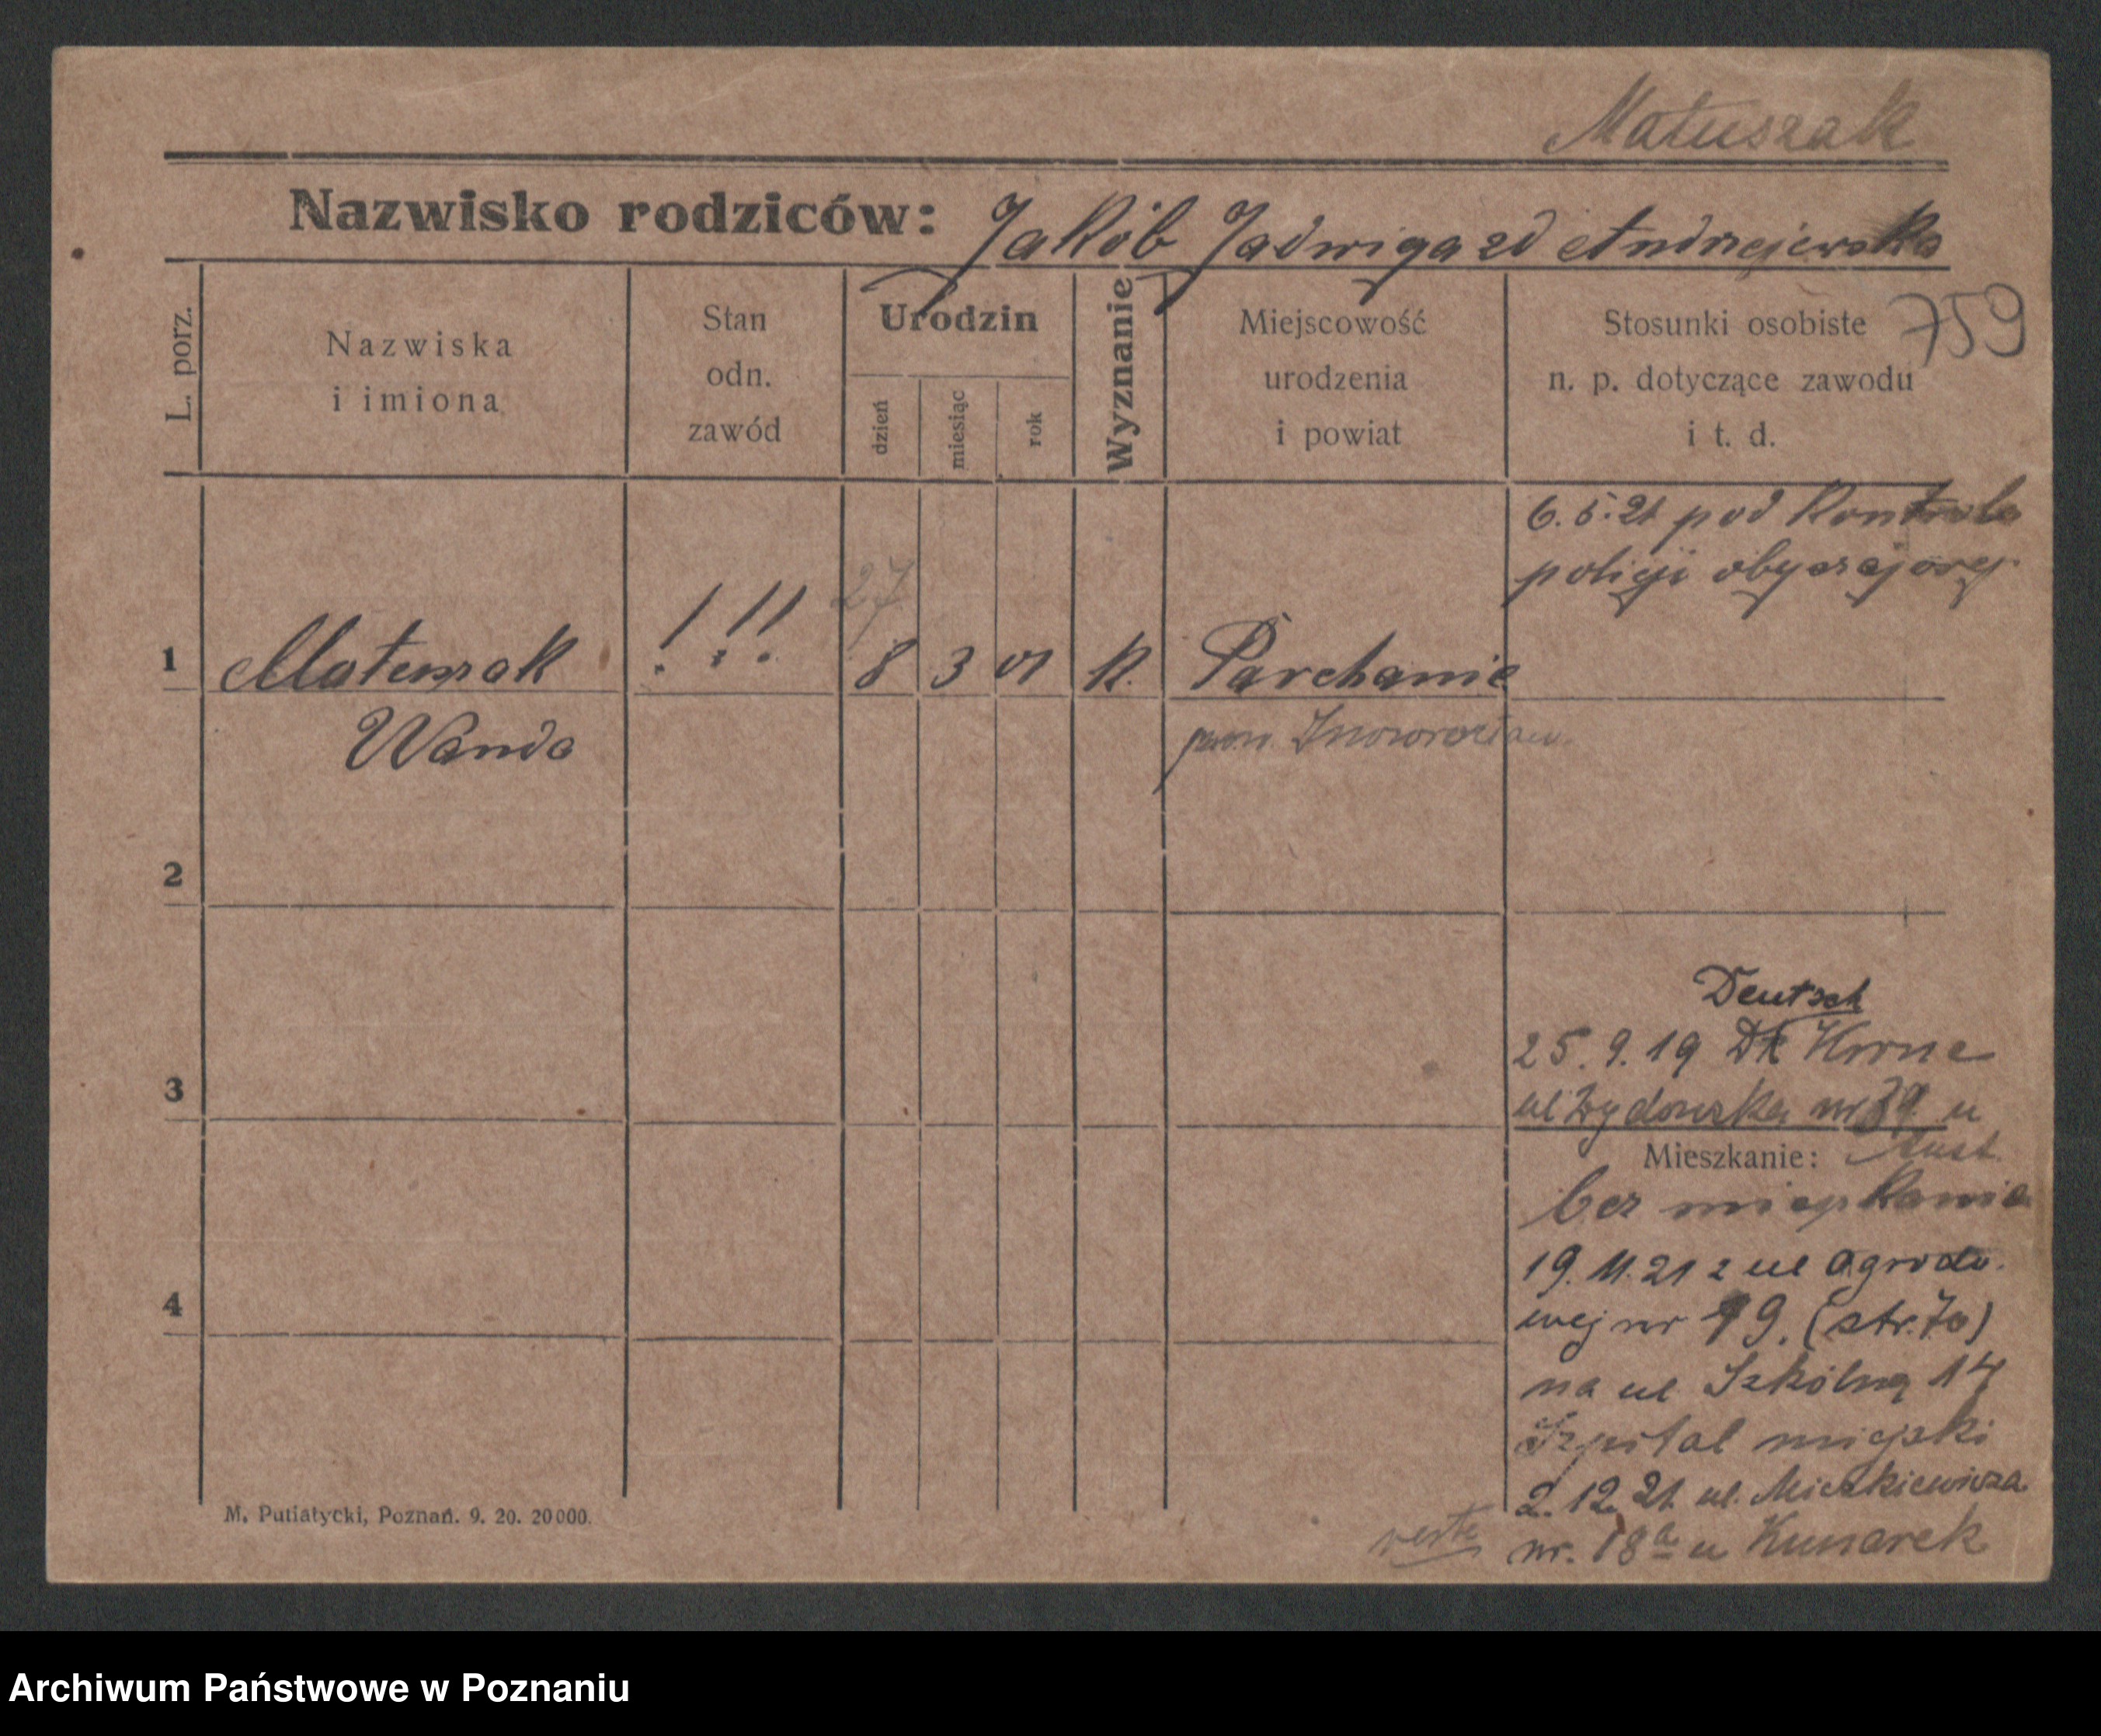 Matuszak
Nazwisko rodziców: Jakób Jadwiga zd Andrzejewska
759
L. porz.
Nazwiska
i imiona
Stan
odn.
zawód
Urodzin
dzień
miesiąc
rok
Wyznanie
Miejscowość
urodzenia
i powiat
Stosunki osobiste
n. p. dotyczące zawodu
i t. d.
6. 5. 21 pod Kontrolą
policji obyczajowej
27
1 Matuszak ! ! ! 8 3 01 K. Parchanie
Wanda pow. Inowrocław
2
Deutsch
25. 9. 19
3 ul Żydowska nr 39 u
Mieszkanie:
bez mieszkania
19. 11. 21 z ul Ogrodo
4 wej nr 19. (str. 70)
na ul Szkólną 14
Szpital miejski
2. 12. 21 ul. Mickiewicza
verte nr. 18a u
M. Putiatycki, Poznań. 9. 20. 20000.
Archiwum Państwowe w Poznaniu